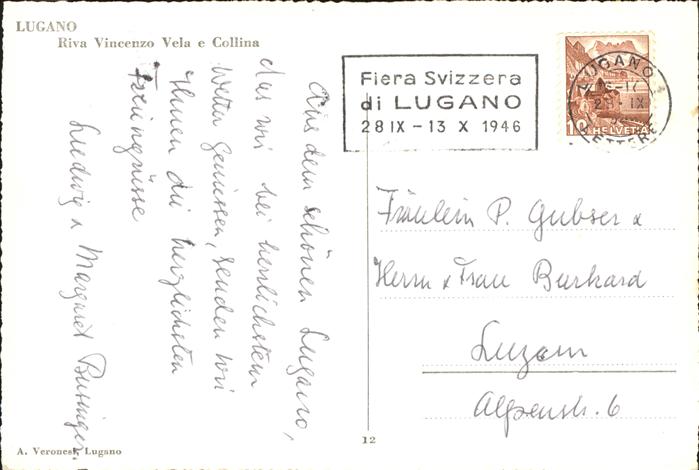 LUGANO
Riva Vincenzo Vela e Collina
Fiera Svizzera
di LUGANO
28 IX - 13 X 1946
LUGANO 1
28 - IX
LETTERE
10 HELVETIA
Aus dem schönen Lugano,
das wir bei herrlichstem
Wetter geniessen, senden wir
Ihnen die herzlichsten
Ludwig & Margaret
Fräulein P. Gubser &
Herrn & Frau Burkard
Luzern
Alpenstr. 6
12
A. Veronesi, Lugano